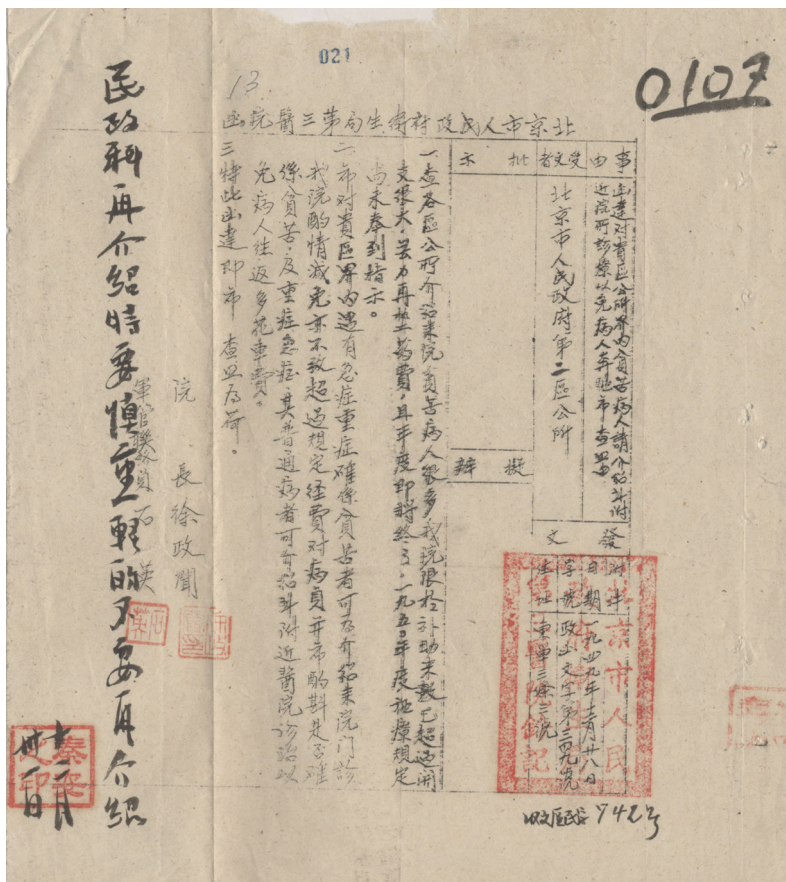 021
0107
13.
北京市人民政府衛生局第三醫院函
事由
函達對貴區公所界內貧苦病人請介紹到附
近診所診療以免病人奔馳希查照由
受文者
北京市人民政府第二區公所
批示
擬辦
發文
附件
日期 一九四九年十二月廿八日
字號 政函文字第三四九號
住址 東單三條三號
北京市人民
一、查各區公所介紹來院貧苦病人很多，我院限於補助米數已超過開
支很大，無力再墊藥費，且年度即將終了，一九五〇年度極療規定
尚未奉到指示。
二、希對貴區界內遇有急症重症確係貧苦者可為介紹來院門診
我院酌情減免亦不致超過規定経費對病員并希酌斟是否確
係貧苦，及重症急症，其普通病者可介紹到附近醫院診治以
免病人往返多花車費。
三、特此函達即希 查照為荷。
院長徐政聞
軍管聯絡員石英
民政科再介紹時要慎重輕的不要再介紹
十二月
卅一日
收區民字742号